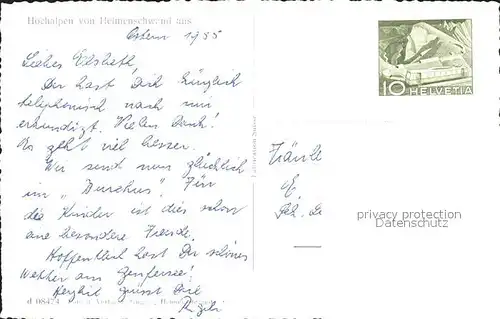 Hochalpen von Heimenschwand aus
Ostern 1955
Liebes Elsbeth!
Du hast Dich kürzlich
telephonisch nach mir
erkundigt. Vielen Dank!
Es geht viel besser.
Wir sind nun glücklich
im „ ". Für
die Kinder ist dies schon
eine besondere Freude.
Hoffentlich hast Du schönes
Wetter am Genfersee!
Herzlich grüsst Dich
10 HELVETIA
Fräul
E
privacy protection
Datenschutz
d 08474